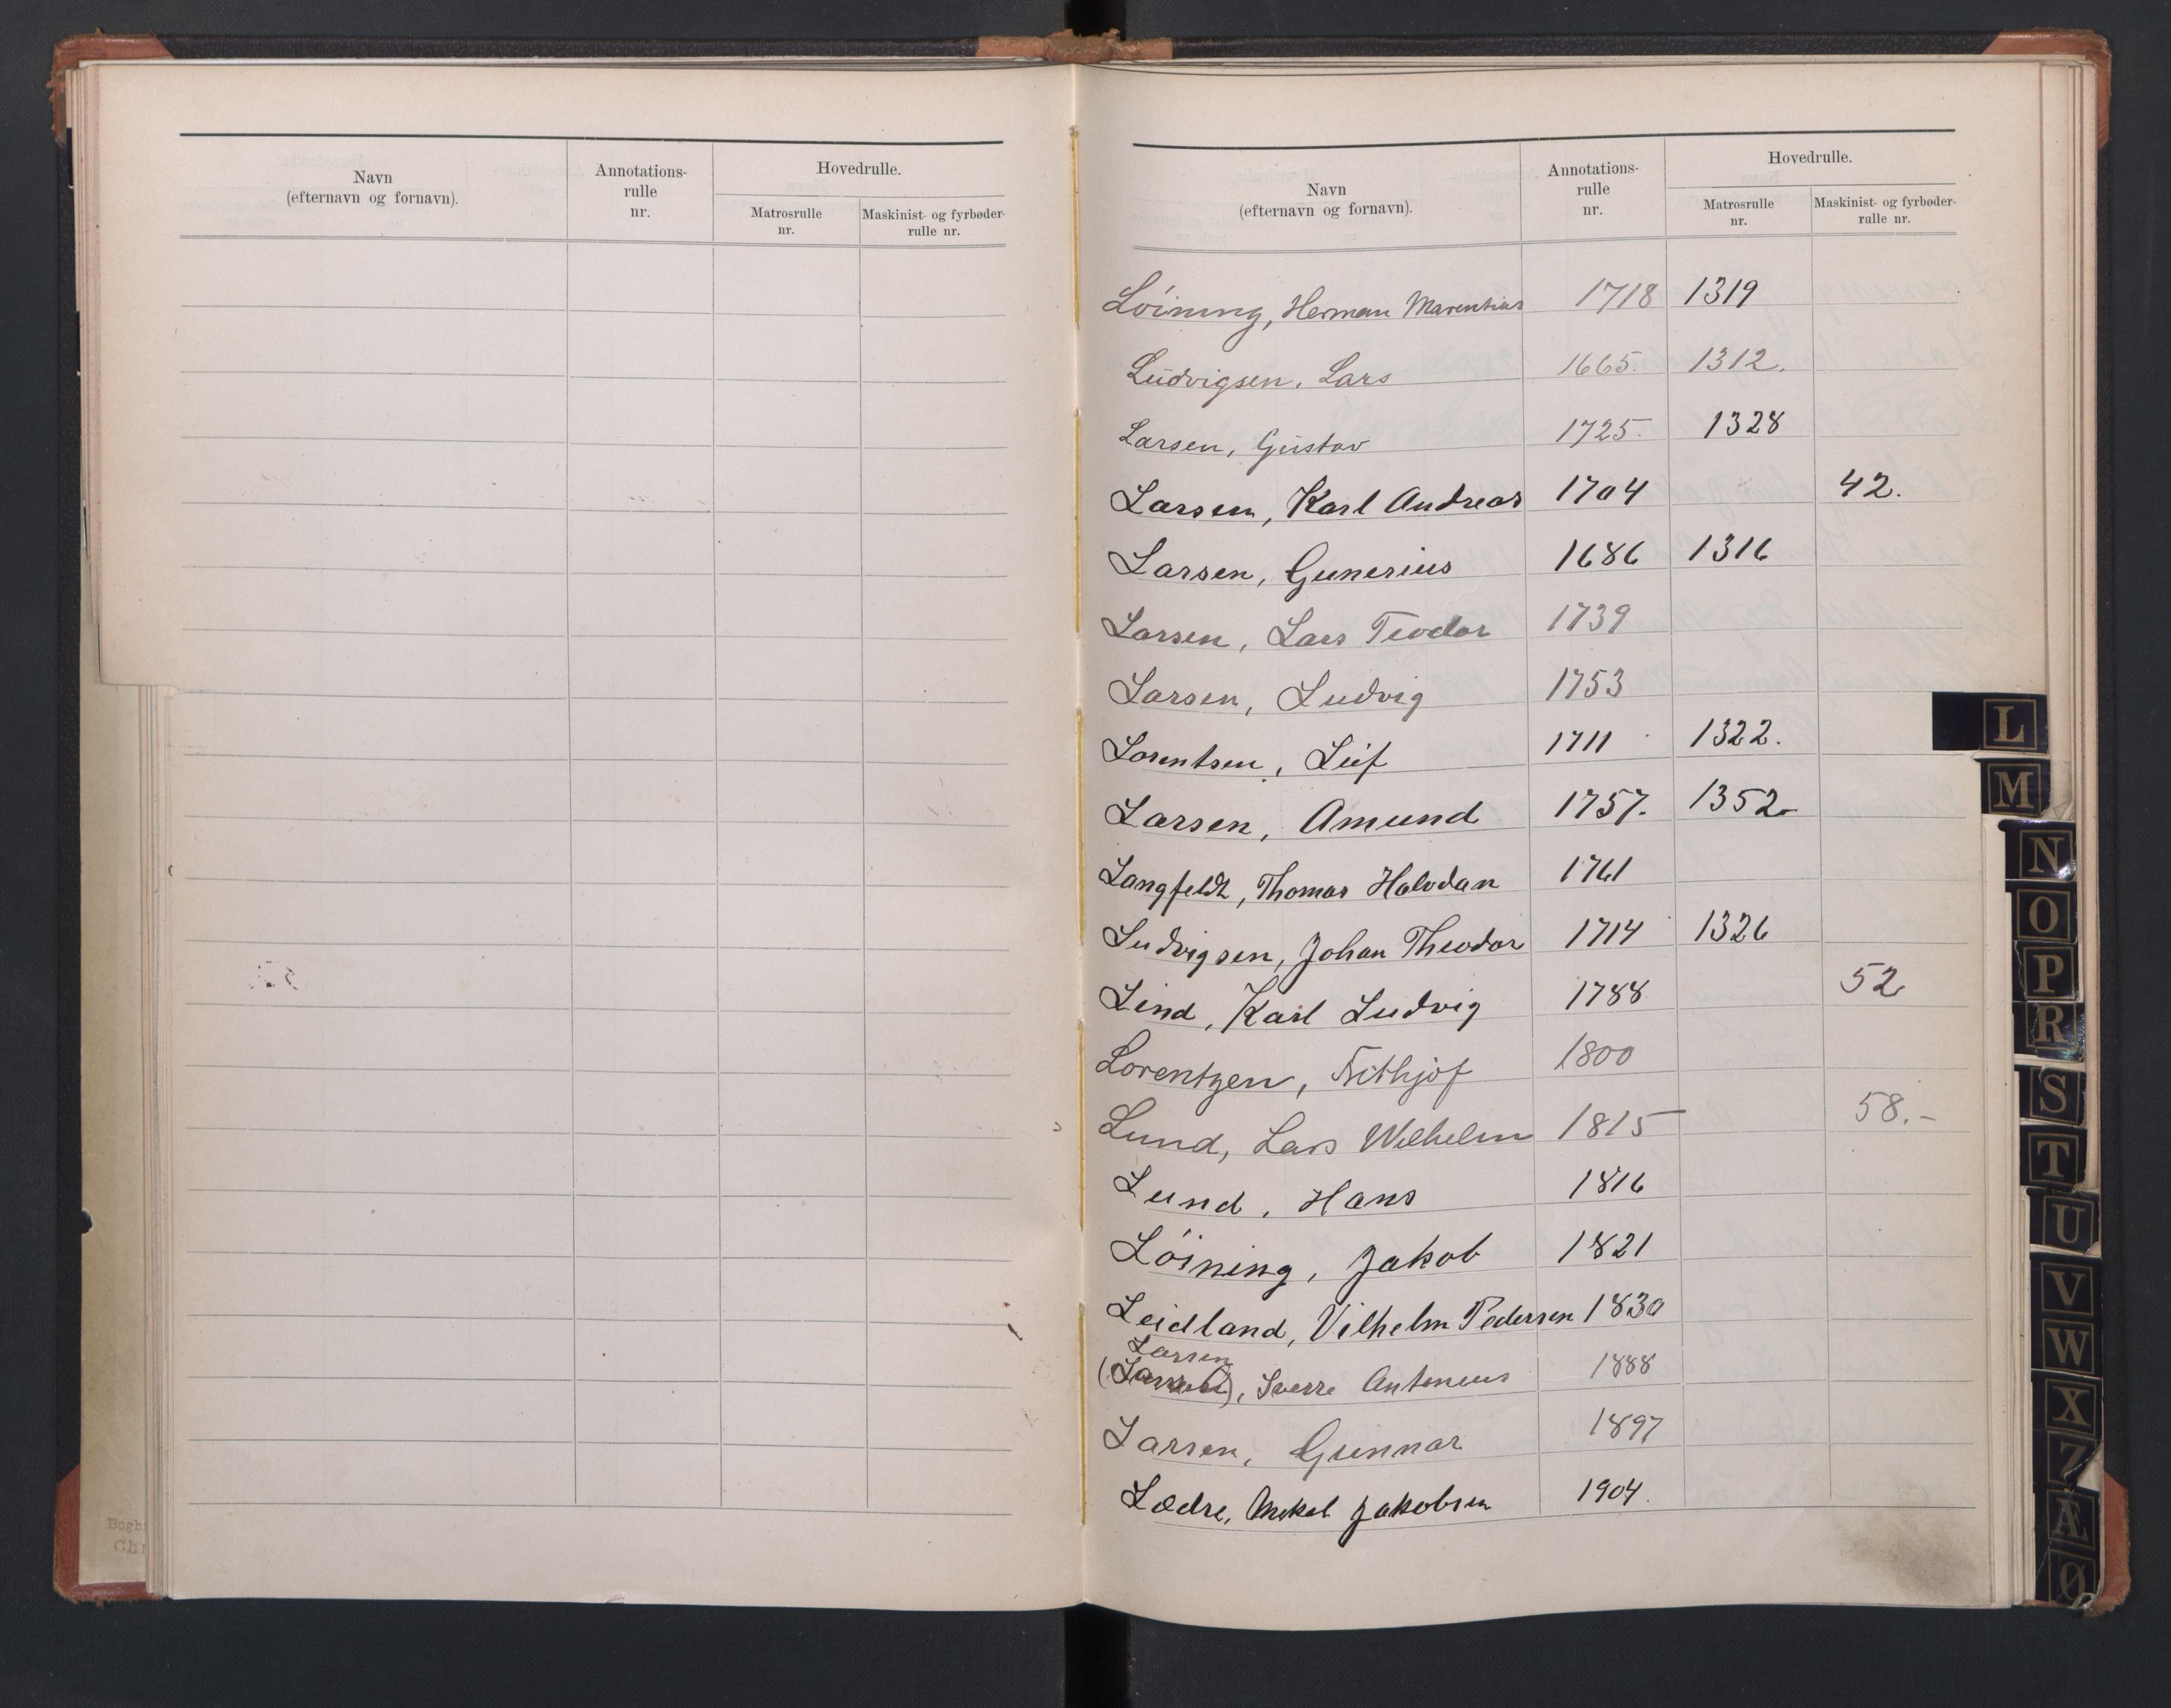 Navn
(efternavn og fornavn).
Annotations-
rulle
nr.
Hovedrulle.
Matrosrulle
nr.
Maskinist- og fyrbøder-
rulle nr.
Navn
(efternavn og fornavn).
Annotations-
rulle
nr.
Hovedrulle.
Matrosrulle
nr.
Maskinist- og fyrbøder-
rulle nr.
Löining, Herman Marentius 1718 1319
Ludvigsen, Lars 1665. 1312.
Larsen, Gustav 1725. 1328
Larsen, Karl Andreas 1704 42.
Larsen, Gunerius 1686 1316
Larsen, Lars Teodor 1739
Larsen, Ludvig 1753
Lorentsen, Leif 1711 1322.
Larsen, Amund 1757. 1352
Langfeldt, Thomas Halvdan 1761
Ludvigsen, Johan Theodor 1714 1326
Lind, Karl Ludvig 1788 52
Lorentzen, Frithjof 1800
Lund, Lars Wilhelm 1815 58.-
Lund, Hans 1816
Löining, Jakob 1821
Leidland, Vilhelm Pedersen 1830
Larsen
, Sverre Antonius 1888
Larsen, Gunnar 1897
Lædre, Mikal Jakobsen 1904.
L
M
N
O
P
R
S
T
U
V
W
X
Z
Æ
Ø
Bogb
Chr